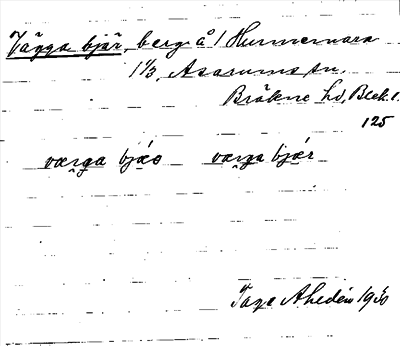 Vägga bjär, berg å 1 Hunnemara
1/3, Asarums sn.
Bräkne hd, Blek. l.
125
værga bjæs værga bjær
Tage Ahedén 1930